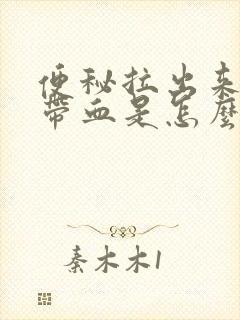 便秘拉出来
带血是怎麼
秦木木1